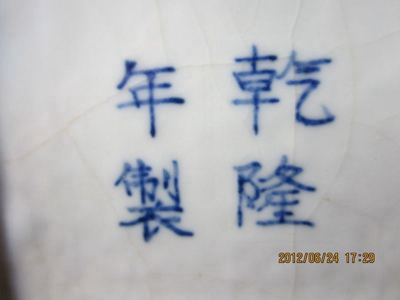 乾隆
年製
2012/06/24 17:29